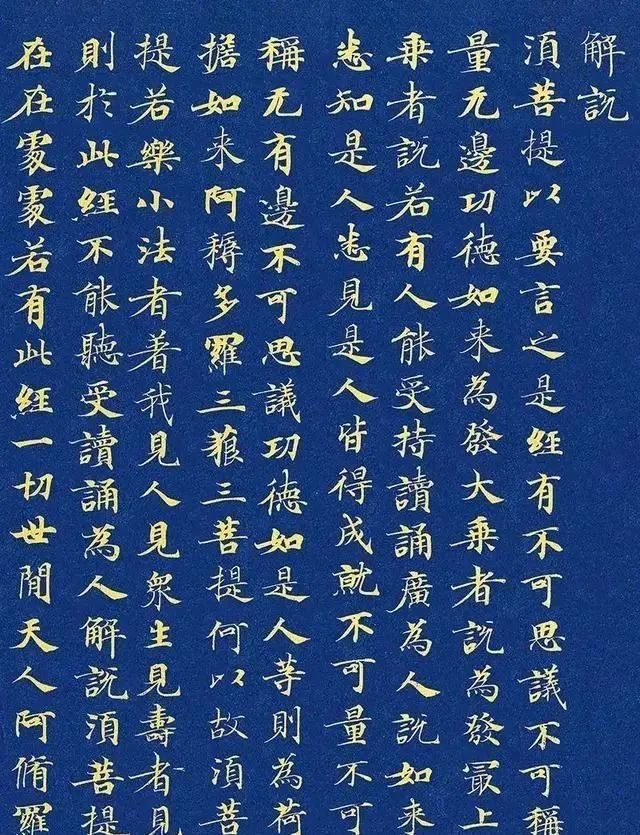 解説
湏菩提以要言之是經有不可思議不可稱
量无邊功德如来為發大乗者說為發冣上
乗者說若有人能受持讀誦廣為人說如来
悉知是人悉見是人皆得成就不可量不可
稱无有邊不可思議功德如是人等則為荷
擔如来阿耨多羅三藐三菩提何以故湏菩
提若樂小法者着我見人見衆生見壽者見
則於此經不能聽受讀誦為人解說湏菩提
在在處處若有此經一切世閒天人阿脩羅